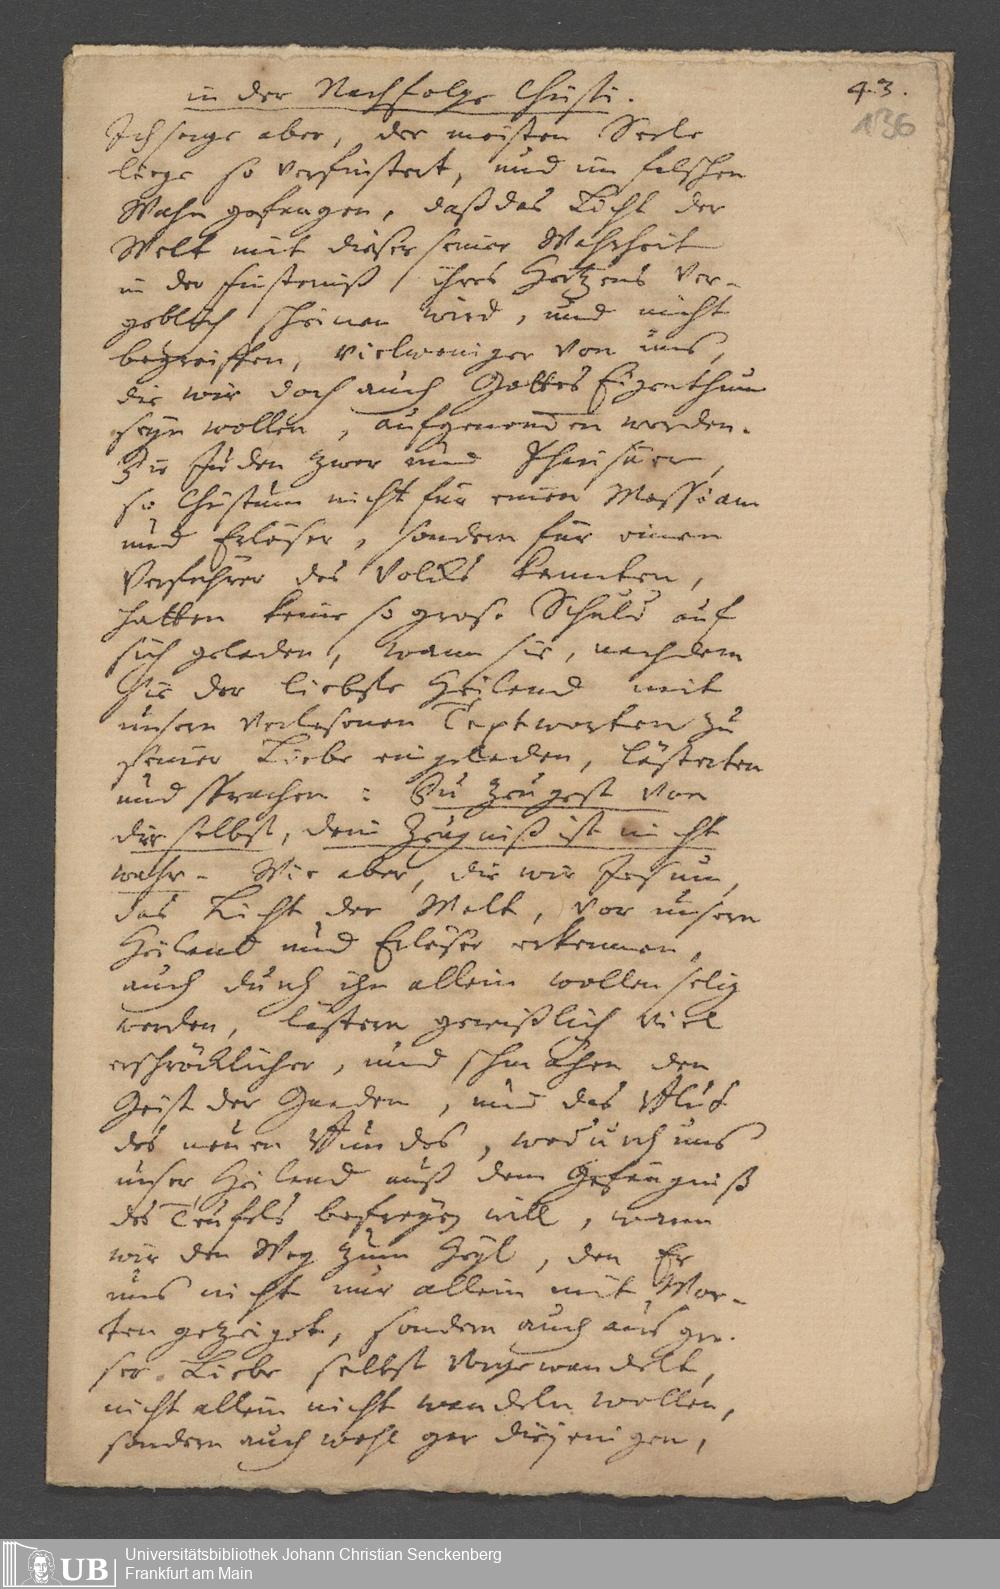 in der Nachfolge Christi.
43.
136
Ich sorge aber, der meisten Seele
liege so verfinstert, und im falschen
Wahn gefangen, daß das Licht der
Welt mit dieser seiner Wahrheit
in der finsterniß ihres Hertzens ver-
geblich scheinen wird, und nicht
begreiffen, vielweniger von uns,
die wir doch auch Gottes Eigenthum
seyn wollen, aufgenommen werden.
Die Juden zwar und Phariseer,
so Christum nicht für einen Messiam
und Erlöser, sondern für einen
Verführer des Volcks kannten,
hatten keine so grose Schuld auf
sich geladen, wann sie, nachdem
Sie der liebste Heiland mit
unsern verlesenen Textworten zu
seiner Liebe eingeladen, lästerten
und sprachen: Du zeugest von
dir selbst, dein Zeugniß ist nicht
wahr. Wir aber, die wir Jesum,
das Licht der Welt, vor unsern
Heiland und Erlöser erkennen,
auch durch ihn allein wollen selig
werden, lästern gewißlich viel
erschröcklicher, und schmähen den
Geist der Gnaden, und das Blut
des neuen Bundes, wodurch uns
unser Heiland auß dem Gefängniß
des Teufels befreyen will, wann
wir den Weg zum Heyl, den Er
uns nicht nur allein mit Wor-
ten gezeiget, sondern auch aus gro-
ser Liebe selbst vorgewandelt,
nicht allein nicht wandeln wollen,
sondern auch wohl gar diejenigen,
UB
Universitätsbibliothek Johann Christian Senckenberg
Frankfurt am Main